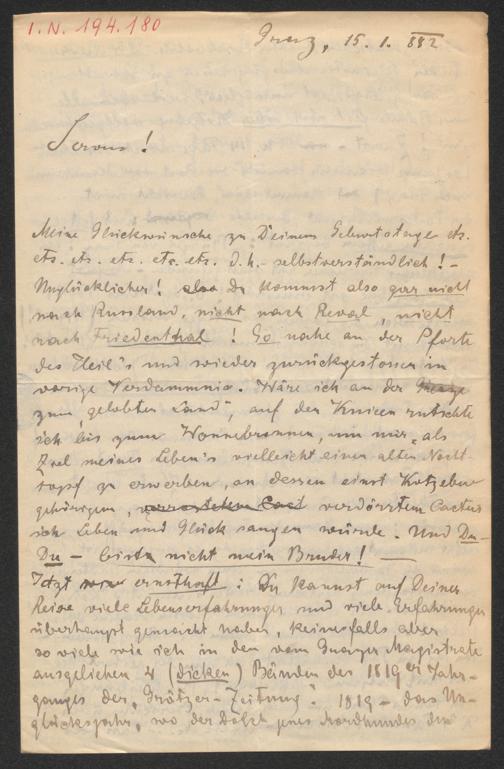 I. N. 194.180
Graz, 15. 1. 882
Servus!
Meine Glückwünsche zu Deinem Geburtstage etc.
etc. etc. etc. etc. etc. d. h. selbstverständlich! –
Unglücklicher! also Du kommst also gar nicht
nach Russland, nicht nach Reval, nicht
nach Friedenthal! So nahe an der Pforte
des Heil's und wieder zurückgestossen in
vorige Verdammnis. Wäre ich an der Grenze
zum „gelobten Land", auf den Knieen rutschte
ich bis zum Wonnebronnen, um mir, als
Ziel meines Leben's vielleicht einen alten Nacht-
topf zu erwerben, an dessen einst Kotzebue
gehörigen, verdörrtem Cactus
ich Leben und Glück saugen würde. Und Du –
Du – bist nicht mein Bruder! –
Jetzt ernsthaft: Du kannst auf Deiner
Reise viele Lebenserfahrungen und viele Erfahrungen
überhaupt gemacht haben, keinesfalls aber
so viele wie ich in den vom Grazer Magistrate
ausgeliehen 4 (dicken) Bänden des 1819er Jahr-
ganges der „Grätzer-Zeitung". 1819 – das Un-
glücksjahr, wo der Dolch jenes Mordhundes den